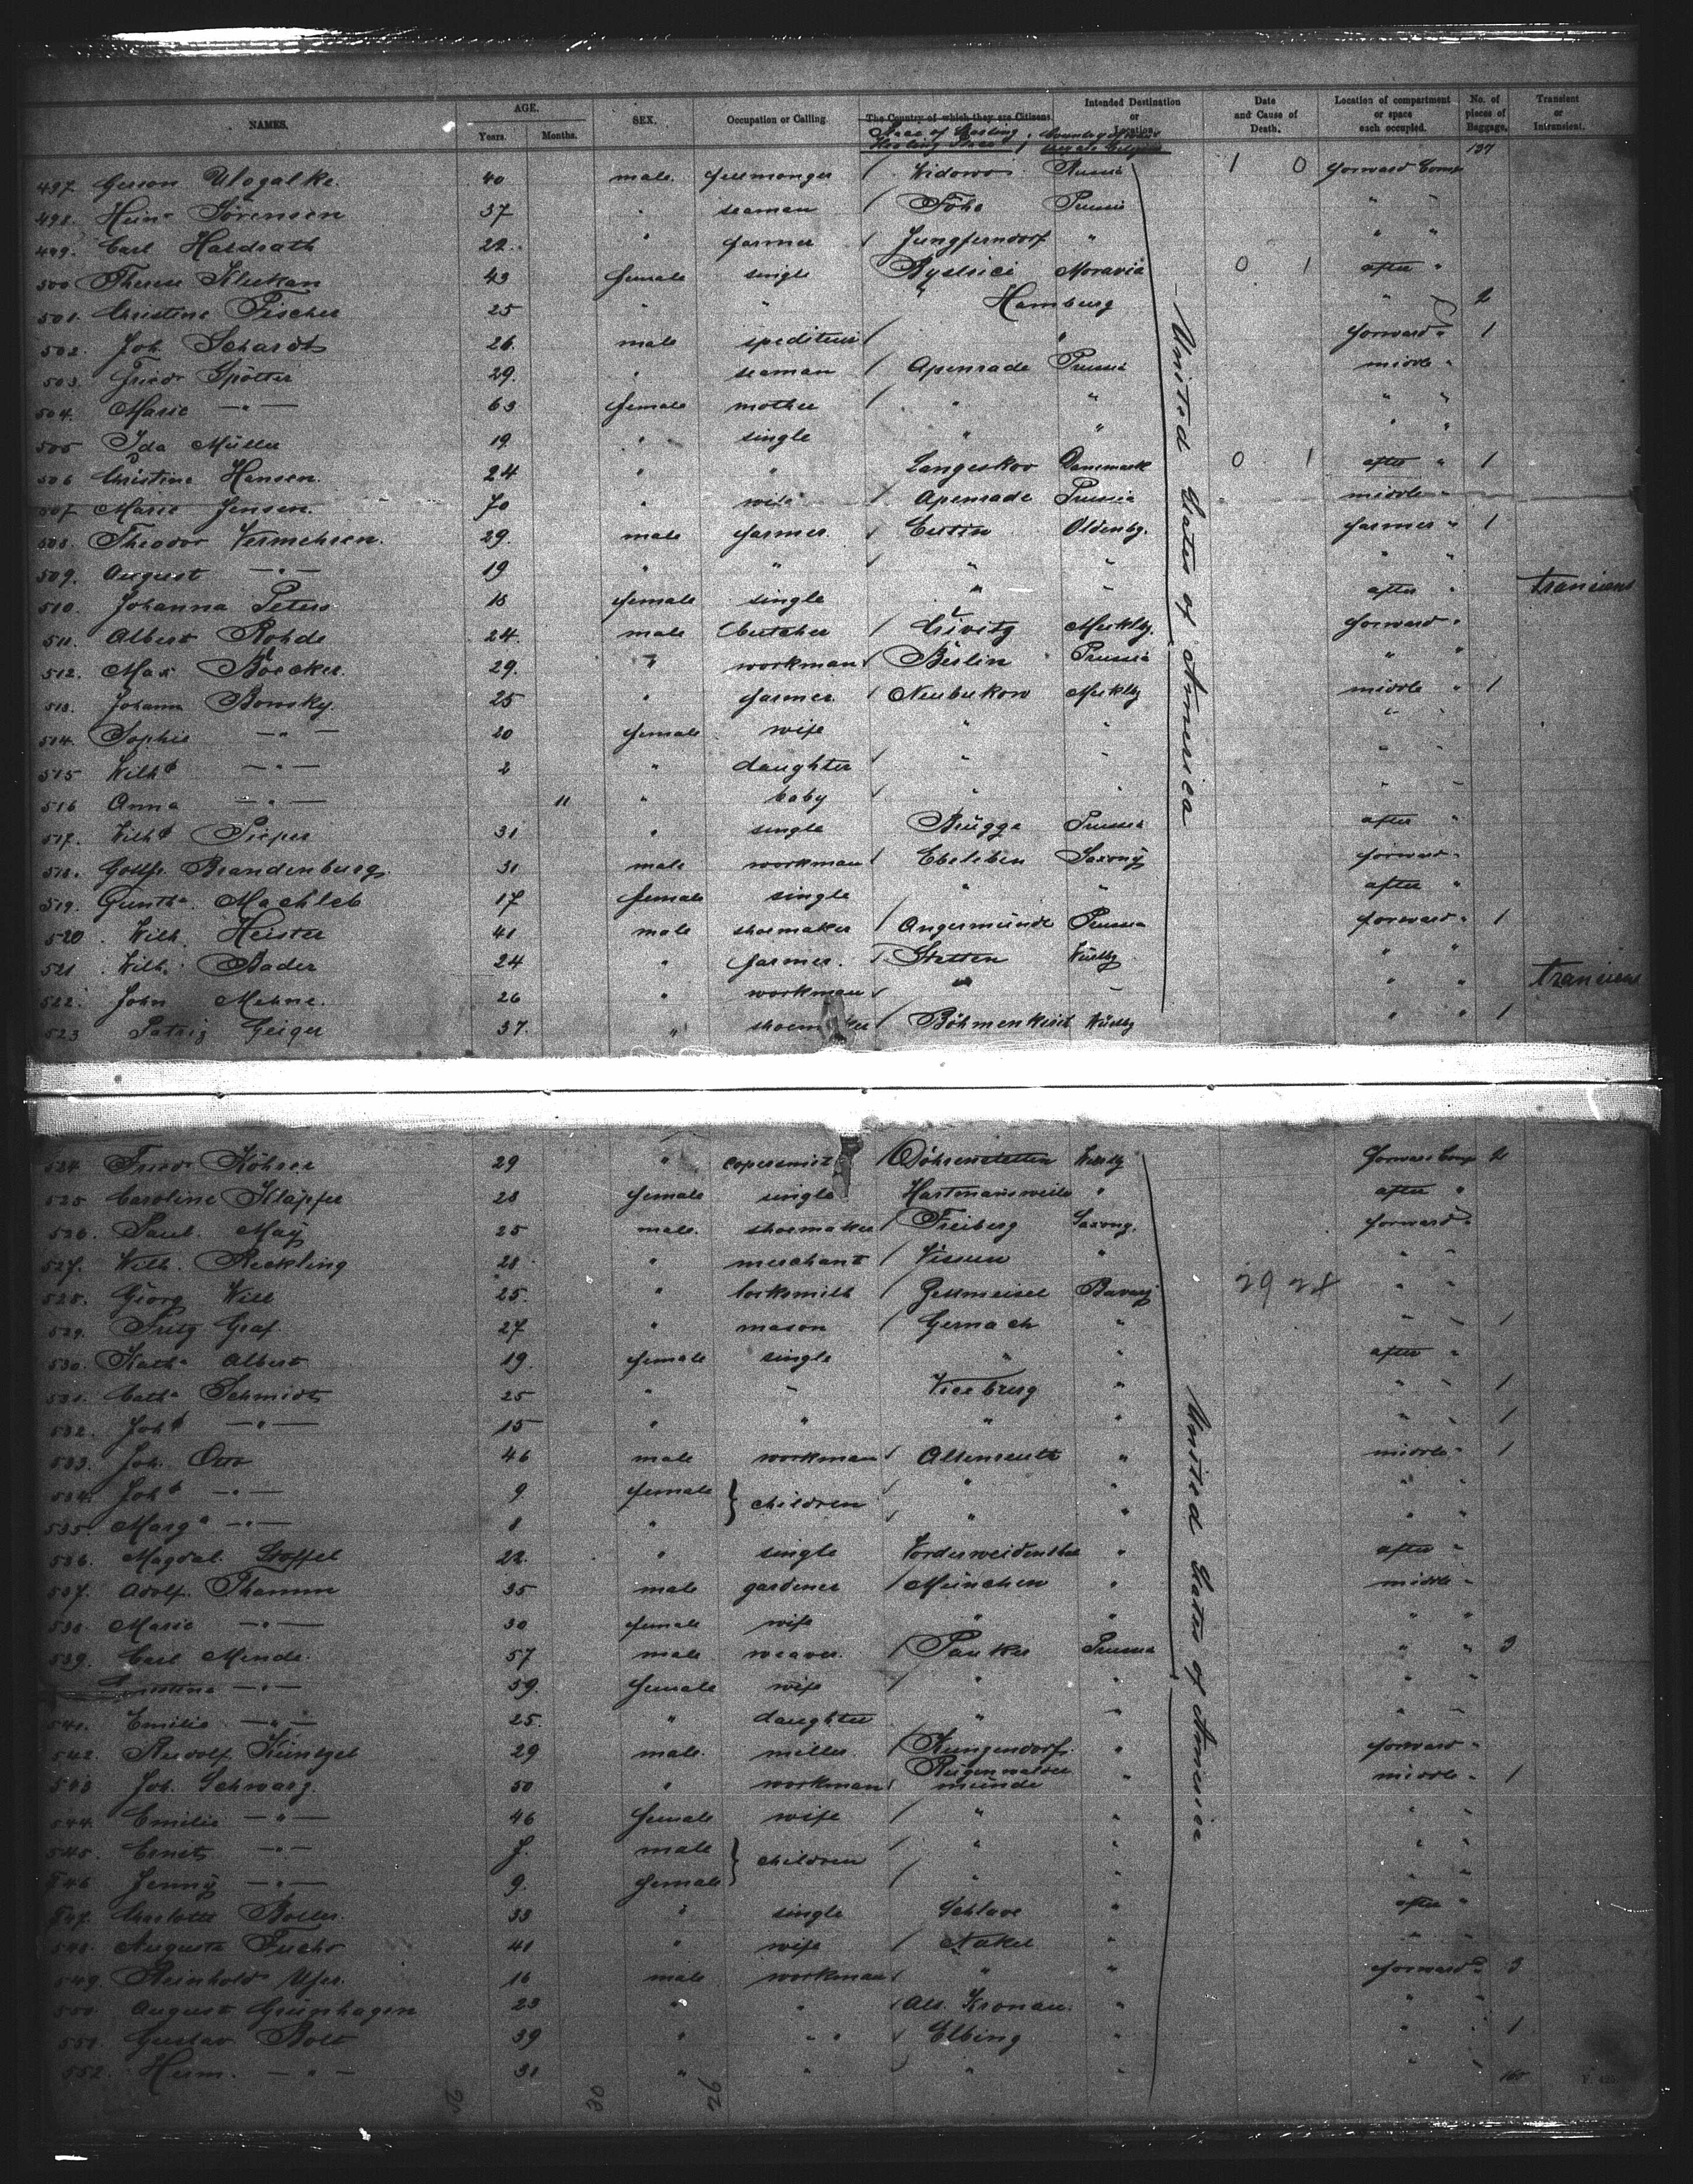 NAMES. AGE. Years. Months. SEX. Occupation or Calling The Country of which they are Citizens Intended Destination or Location Date and Cause of Death. Location of compartment or space each occupied. No. of pieces of Baggage. Transient or Intransient.
137
497. Gerson 40 male. fellmonger / Widowo Russia 1 0 forward Comp
498. Heinr Sörensen 37 " seaman / Föhr Prussia " "
499. Carl Haldrath 22. " farmer √ Jungferndorf " " "
500 Therese 43 female single Bystrici Moravia 0 1 after "
501. Christine Fischer 25 " " Hamburg " " 2
502. Joh. Schardt 26. male spediteur / " forward " 1
503. Friedr Spötter 29. " seaman / Apenrade Prussia middle "
504. Marie — " — 63 female mother / " " " "
505 Ida Müller 19. " single " " " "
506 Christine Hansen. 24 " " Langeskov Danemark 0 1 after " 1
507 Marie Jensen. 70 " / Apenrade Prussia middle "
508. Theodor Vermehren. 29. male farmer. √ Eutin Oldenbg. farmer " 1
509. August — " — 19 " " √ " " " "
510. Johanna Peters 18 female single " " after " trancient
511. Albert Rohde 24. male butcher / Crivitz Mecklbg. forward "
512. Max Boecker. 29. " workman √ Berlin Prussia " "
513. Johann Bonsky. 25 " farmer / Neubukow Mecklbg middle " 1
514. Sophie — " — 20 female wife " " " "
515 Wilhe — " — 2 " daughter √ " " " "
516 Anna — " — 11 " baby √ " " " "
517. Wilhe Pieper 31 " single Brügge Prussia after "
518. Gottfr. Brandenburg. 31 male workman / Ebeleben Saxony forward "
519. Gunthe. Machleb 17 female single " " after "
520. Wilh. Heister 41 male shoemaker / Angermünde Prussia forward " 1
521. Wilh. Bader 24 " farmer. √ Stetten Würtbg " "
522. John Mehne. 26 " workman √ " " " " trancient
523 Patriz Geiger 37. " shoemaker / Böhmenkirch Würtbg " " 1
United States of America
524. Friedr Köhrer 29 " copersmith / Würtbg forward Comp 2
525 Caroline Kläpfer 28 female single Hartmannsweiler " after "
526. Paul. May 25 male. shoemaker / Freiberg Saxony. forward "
527. Wilh. Reckling 28 " merchant / " " "
528. Georg Will 25. " locksmith / Gessmeisel Bavary 29 28 " "
529. Fritz Graf. 27 " mason / Gernach " " " 1
530. Kathe Albert 19. female single " " after "
531. Cathe Schmidt 25 " " " " " 1
532. Johe — " — 15 " " " " " " 1
533. Joh. Otto 46 male workman √ Altenreuth " middle " 1
534. Johe — " — 9. female } children √ " " "
535. Marge — " — 8 " √ " " " "
536. Magdal. Stoffel 22. " single Vorderweidenthal " after "
537. Adolf. Thamm 35 male gardener / München " middle "
538. Marie — " — 30 female wife " " " "
539. Carl Mende. 57 male weaver. / Panker Prussia " " 3
— " — 59. female wife / " " " "
541. Emilie — " — 25. " daughter " " " "
542. Rudolf Küntzel 29 male. miller. / Kunzendorf. " forward "
543 Joh. Schwarz. 50 " workman √ Rügenwaldermünde " middle " 1
544. Emilie — " — 46 female wife / " " " "
545. Ernst — " — 7. male } children / " " " "
546 Jenny — " — 9. female / " " " "
547. Charlotte Boller. 33 " single Schlawe " after "
548. Auguste Fuchs 41 " wife / Nakel " " "
549. Reinhold 16 male workman √ " " forward " 3
550. August Grünhagen 23 " " √ Alt. Kronau. " " "
551. Gustav Bolt 39 " " √ Elbing " " " 1
552. Herm. — " — 31 " " √ " " " "
United States of America
160